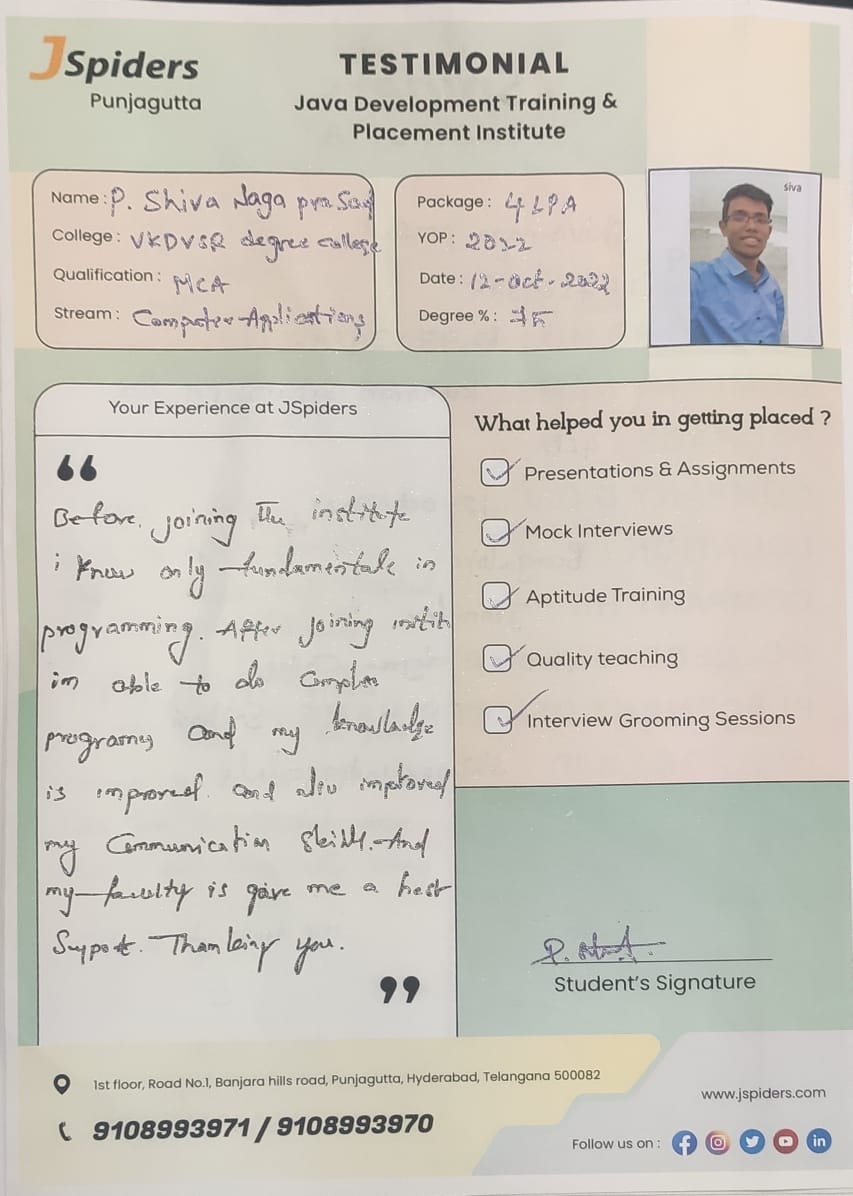 JSpiders
Punjagutta
TESTIMONIAL
Java Development Training &
Placement Institute
Name : P. Shiva Naga prasad
College : VKDVSR degree college
Qualification : MCA
Stream : Computer Applications
Package : 4 LPA
YOP : 2022
Date : 12-oct-2022
Degree % : 75
siva
Your Experience at JSpiders
“
Before, joining The institute
i know only fundamentals in
programming. After joining institu
im able to do complex
programs and my knowledge
is improved. and also improved
my Communication skills. And
my faculty is gave me a best
Support. Thanking you.
”
What helped you in getting placed ?
Presentations & Assignments
Mock Interviews
Aptitude Training
Quality teaching
Interview Grooming Sessions
P.
Student's Signature
1st floor, Road No.1, Banjara hills road, Punjagutta, Hyderabad, Telangana 500082
9108993971 / 9108993970
www.jspiders.com
Follow us on :